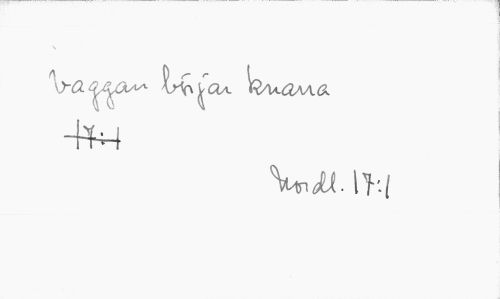 vaggan börjar knarra
17:1
Nordl. 17:1